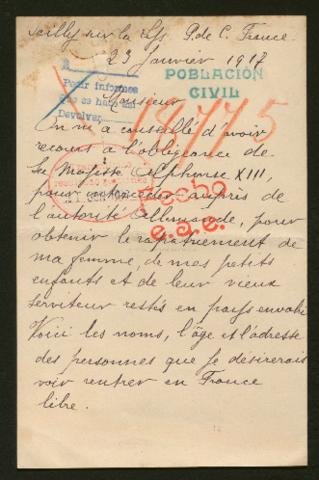 Sailly sur la Lys P. de C. France
23 Janvier 1917
POBLACIÓN
CIVIL
Pedir informes
que se harán
Devolver
18775
Monsieur
On m'a conseillé d'avoir
recours à l'obligeance de
Sa Majesté Alphonse XIII,
pour intercéder auprès de
l'autorité Allemande, pour
Hecho
e.a.e.
obtenir le rapatriement de
ma femme, de mes petits
enfants et de leur vieux
serviteur restés en pays envahi
Voici les noms, l'âge et l'adresse
des personnes que je désirerais
voir rentrer en France
libre.